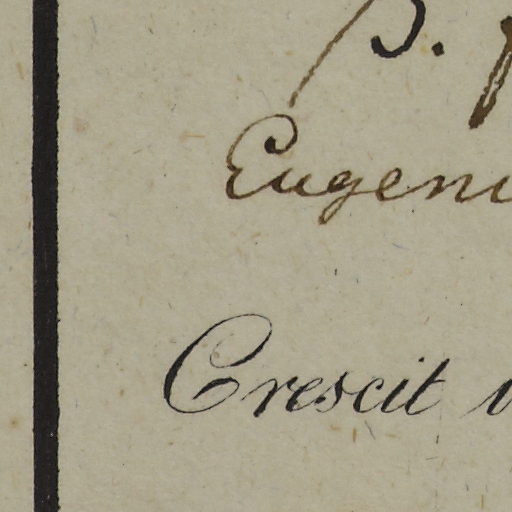 B.
Eugeni
Crescit